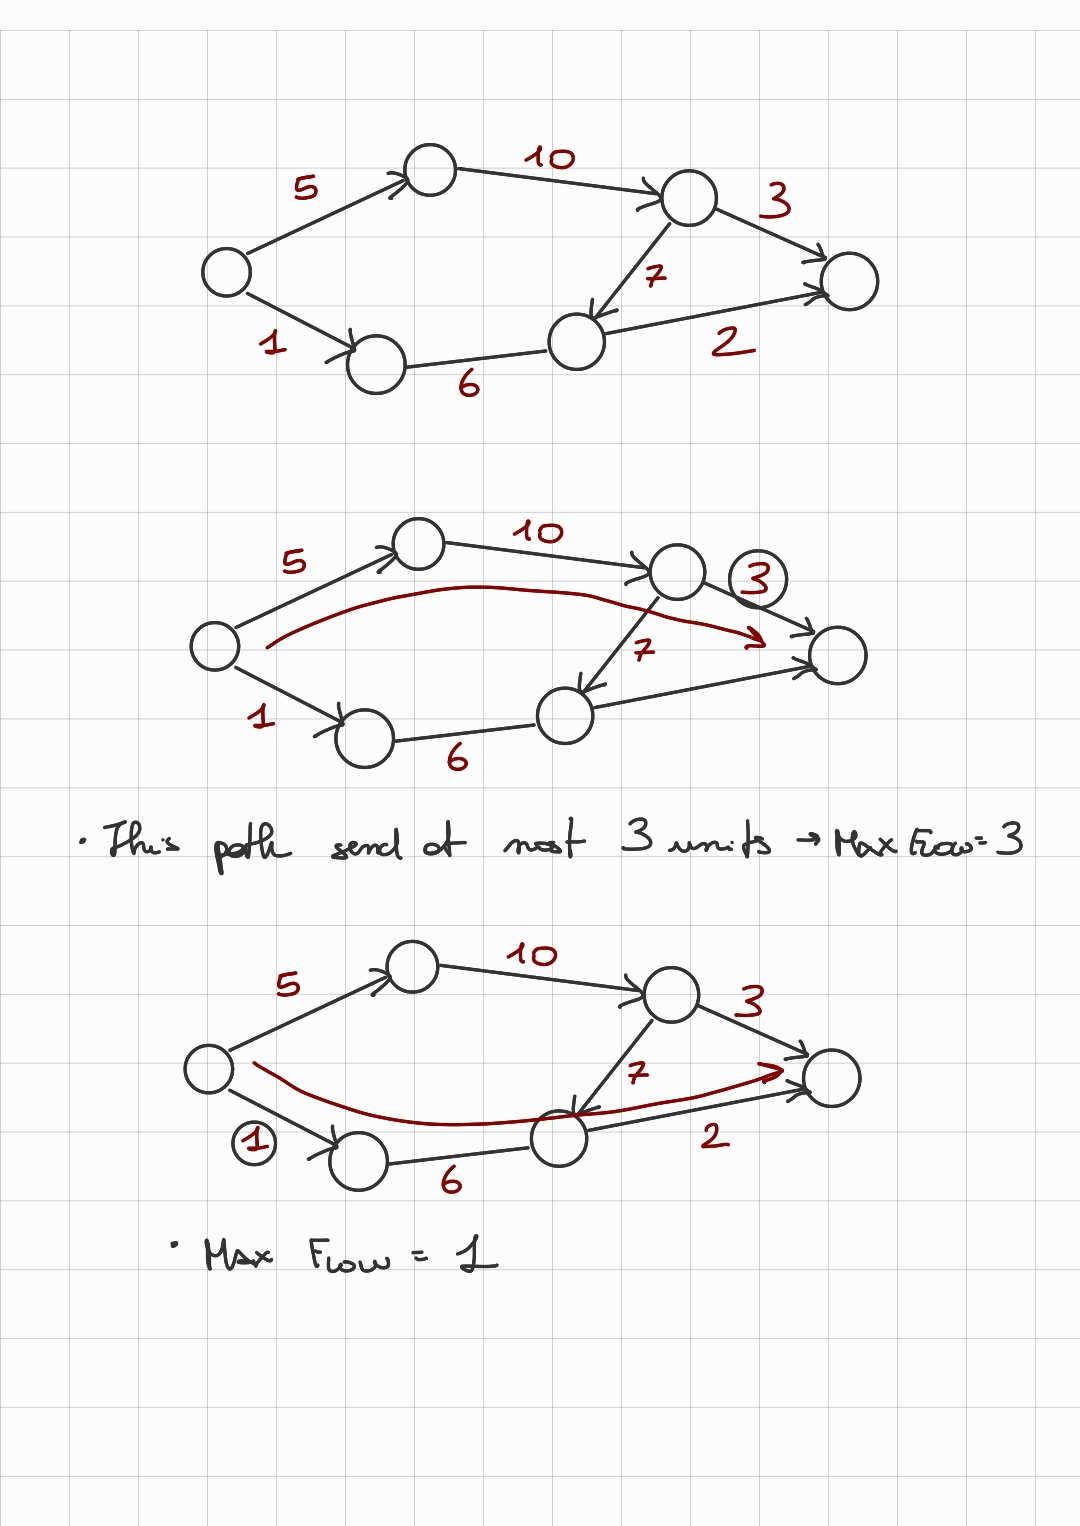 10
5
3
7
1
2
6
10
5
3
7
1
6
· This path send at most 3 units → Max Flow = 3
10
5
3
7
1
2
6
· Max Flow = 1